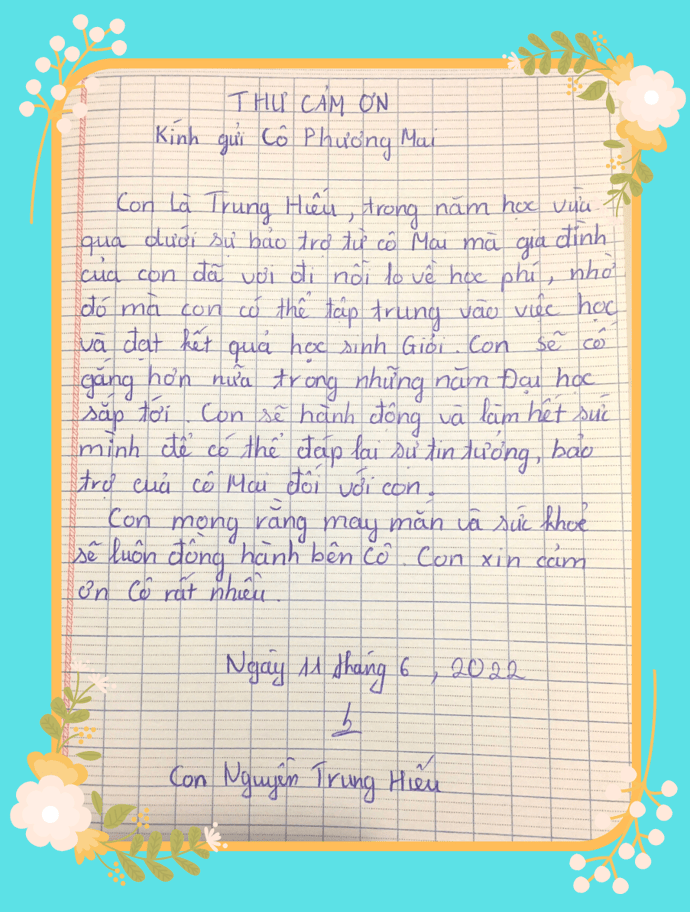 THƯ CẢM ƠN
Kính gửi Cô Phương Mai
Con Là Trung Hiếu, trong năm học vừa
qua dưới sự bảo trợ từ cô Mai mà gia đình
của con đã vơi đi nỗi lo về học phí, nhờ
đó mà con có thể tập trung vào việc học
và đạt kết quả học sinh Giỏi. Con sẽ cố
gắng hơn nữa trong những năm Đại học
sắp tới. Con sẽ hành động và làm hết sức
mình để có thể đáp lại sự tin tưởng, bảo
trợ của cô Mai đối với con.
Con mong rằng may mắn và sức khoẻ
sẽ luôn đồng hành bên Cô. Con xin cảm
ơn Cô rất nhiều.
Ngày 11 tháng 6, 2022
Con Nguyễn Trung Hiếu